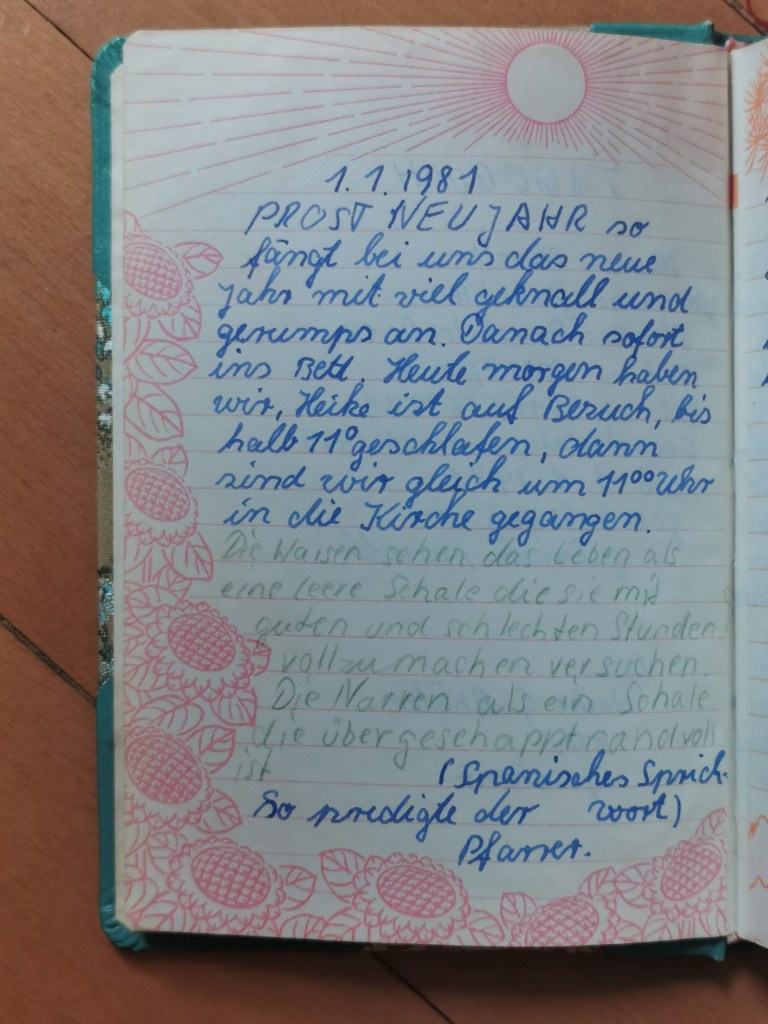 1.1.1981
PROST NEUJAHR so
fängt bei uns das neue
Jahr mit viel geknall und
gerumps an. Danach sofort
ins Bett. Heute morgen haben
wir, Heike ist auf Besuch, bis
halb 11° geschlafen, dann
sind wir gleich um 11°° Uhr
in die Kirche gegangen.
Die Waisen sehen das Leben als
eine leere Schale die sie mit
guten und schlechten Stunden
vollzumachen versuchen.
Die Narren als ein Schale
die übergeschapptrandvoll
ist (Spanisches Sprich-
So predigte der wort)
Pfarrer.